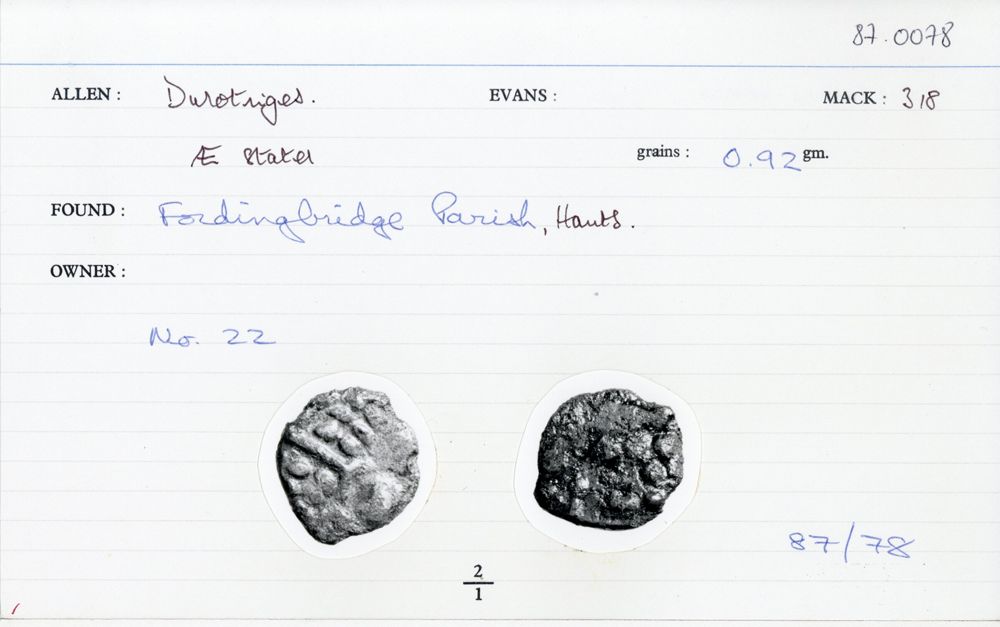 87.0078
ALLEN : Durotriges. EVANS : MACK : 318
Æ stater grains : 0.92 gm.
FOUND : Fordingbridge Parish, Hants.
OWNER :
No. 22
87/78
2
1